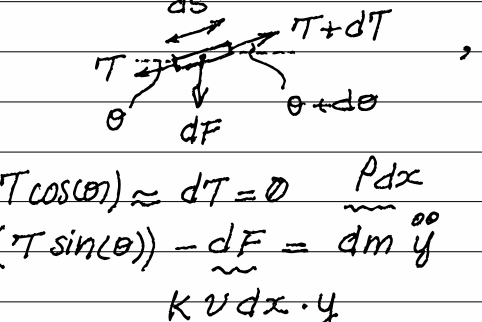 ds
T T+dT ,
θ dF θ+dθ
T cos(θ)) ≈ dT = 0 ρdx
(T sin(θ)) - dF = dm ÿ
K v dx · y